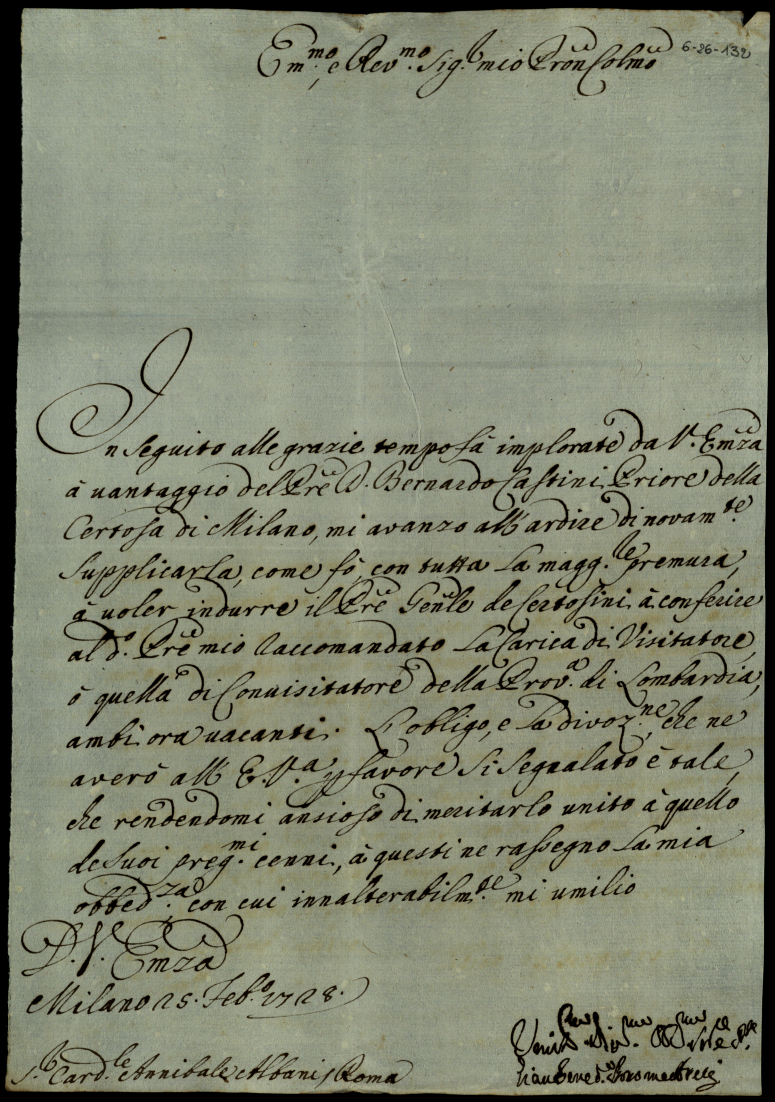 Em.mo, e Rev.mo Sig.r mio Pron Colmo
6-26-132
In seguito alle grazie tempo fà implorate da V. Emza
à vantaggio del Prè D. Bernardo Castini Priore della
Certosa di Milano, mi avanzo all'ardire di novam.te
supplicarla, come fò, con tutta la magg.re premura,
à voler indurre il Prè Gen̄le de Certosini à conferire
al d.o Prè mio raccomandato la Carica di Visitatore,
ò quella di Convisitatore della Prov.a di Lombardia,
ambi ora vacanti. L'obligo, e la divoz.ne, che ne
averò all' E.V.a p favore si segnalato è tale,
che rendendomi ansioso di meritarlo unito à quello
de suoi preg.mi cenni, à questi ne rassegno la mia
obbed.za, con cui innalterabilm.te mi umilio
D. V. Emza
Milano 25. Feb.o 1728.
S.r Card.le Annibale Albani / Roma